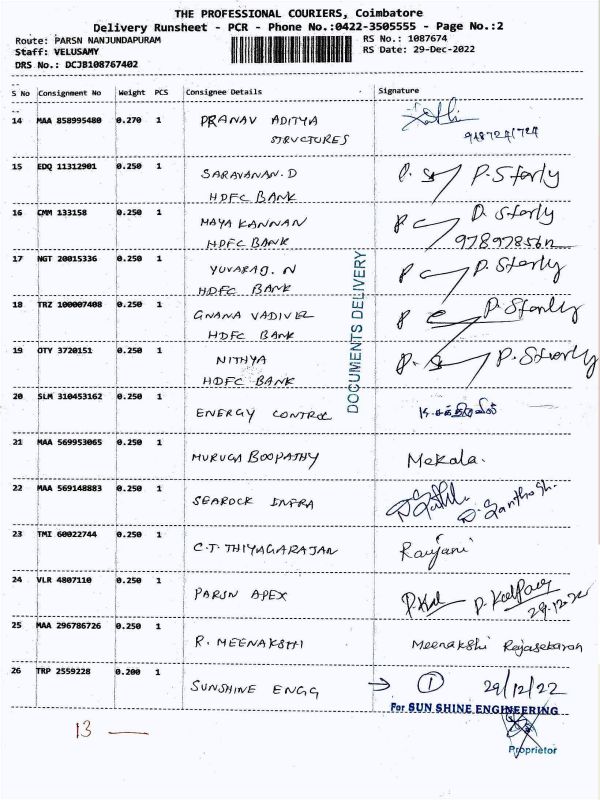 THE PROFESSIONAL COURIERS, Coimbatore
Delivery Runsheet - PCR - Phone No.:0422-3505555 - Page No.:2
Route: PARSN NANJUNDAPURAM RS No.: 1087674
Staff: VELUSAMY RS Date: 29-Dec-2022
DRS No.: DCJB108767402
S No Consignment No Weight PCS Consignee Details Signature
14 MAA 858995480 0.270 1 PRANAV ADITYA
STRUCTURES
15 EDQ 11312901 0.250 1 SARAVANAN.D P. Sterly
HDFC BANK
16 CMM 133158 0.250 1 MAYA KANNAN D. Sterly
HDFC BANK
17 NGT 20015336 0.250 1 YUVARAJ. N P. Sterly
HDFC BANK
18 TRZ 100007408 0.250 1 GNANA VADIVEL P. Sterly
HDFC BANK
19 OTY 3720151 0.250 1 NITHYA P. Sterly
HDFC BANK
DOCUMENTS DELIVERY
20 SLM 310453162 0.250 1 ENERGY CONTROL
21 MAA 569953065 0.250 1 MURUGA BOOPATHY Mekala.
22 MAA 569148883 0.250 1 SEAROCK INFRA D. Santhosh.
23 TMI 60022744 0.250 1 C.T. THIYAGARAJAN Ranjani
24 VLR 4807110 0.250 1 PARSN APEX
29.12.22
25 MAA 296786726 0.250 1 R. MEENAKSHI Meenakshi Rajasekaran
26 TRP 2559228 0.200 1 SUNSHINE ENGG → 1 29/12/22
For SUN SHINE ENGINEERING
Proprietor
13 —